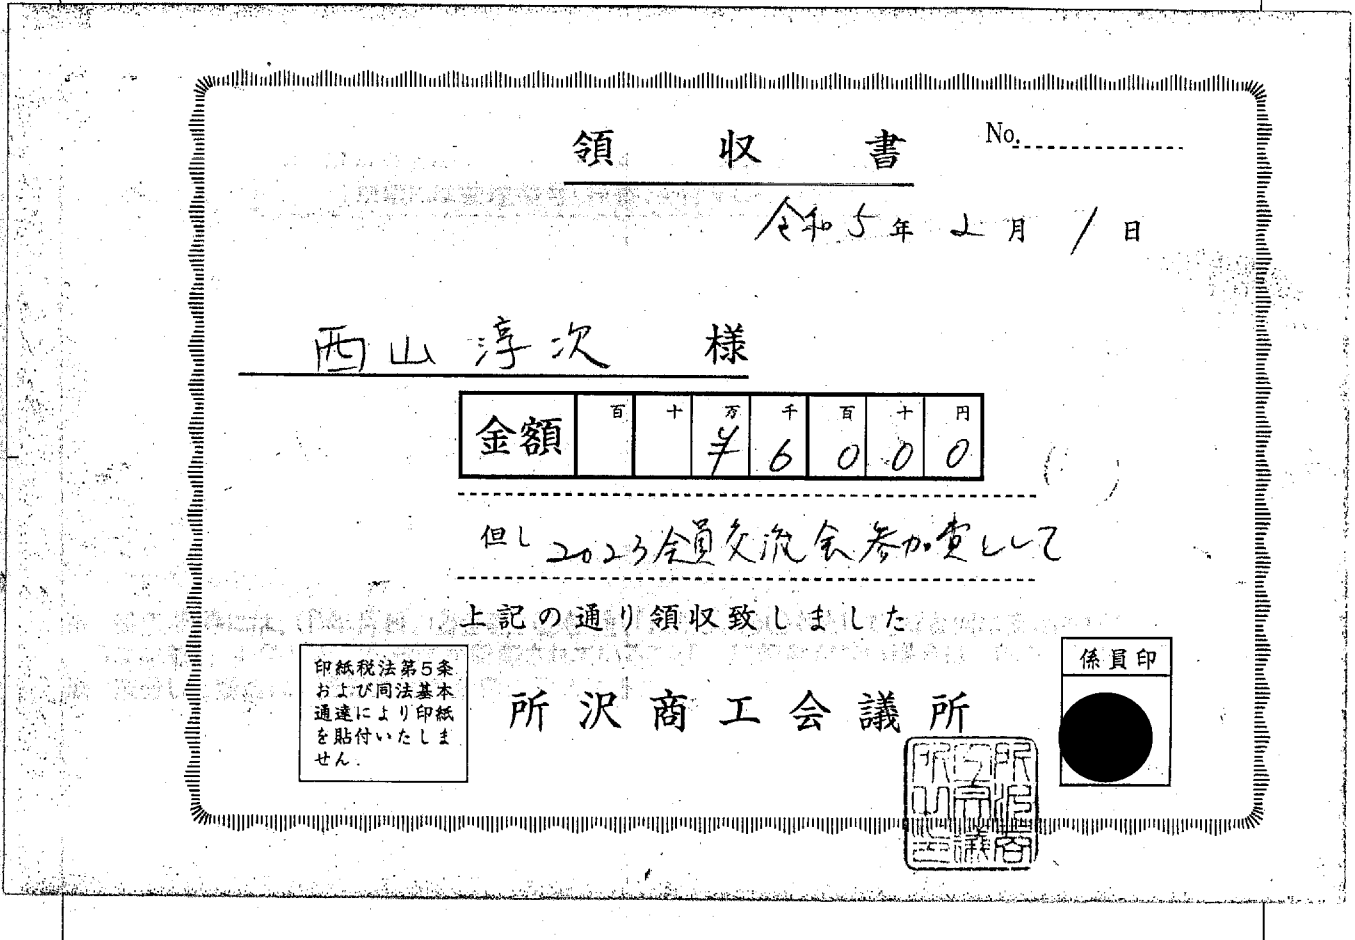 領収書
No.
令和5年2月1日
西山淳次 様
金額 百 十 万 千 百 十 円
¥6000
但し 2023会員交流会参加費として
上記の通り領収致しました
印紙税法第5条
および同法基本
通達により印紙
を貼付いたしま
せん.
所沢商工会議所
係員印